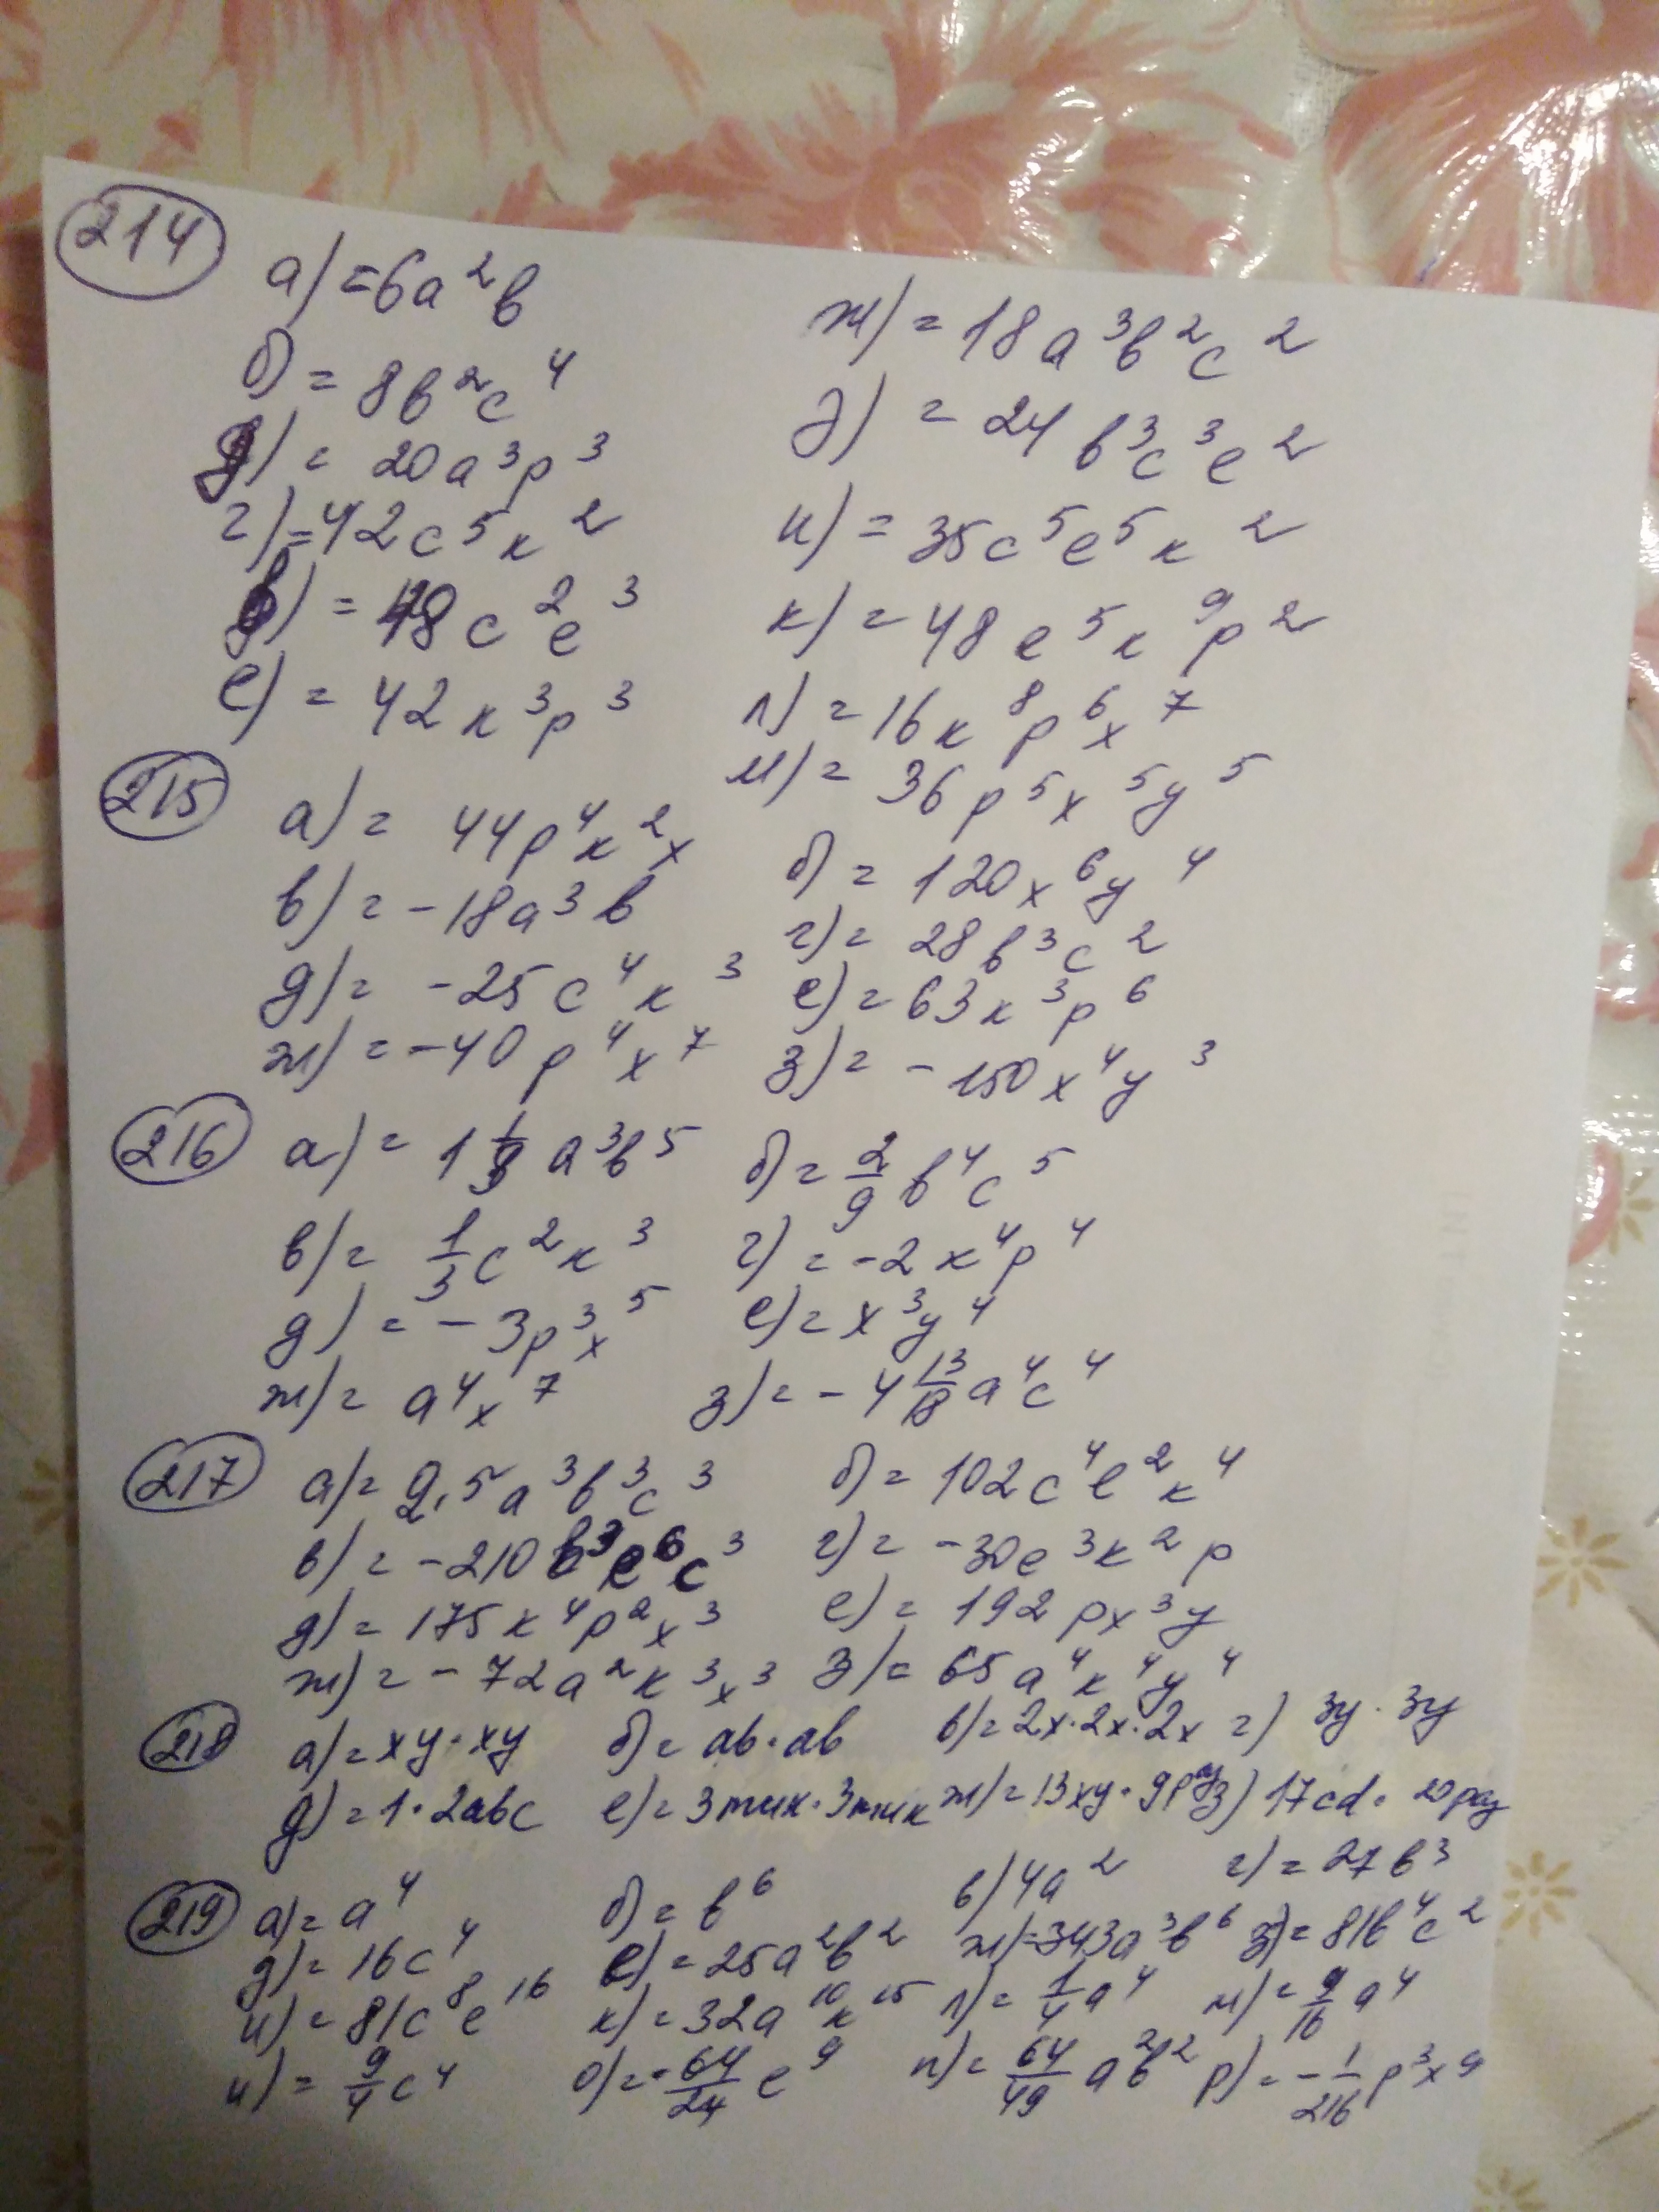 214
а) = 6a²b ж) = 18a³b²c²
б) = 8b²c⁴ з) = 24b³c³e²
д) = 20a³p³ и) = 35c⁵e⁵к²
г) = 42c⁵к² к) = 48e⁵к⁹p²
= 48c²e³ л) = 16к⁸p⁶x⁷
е) = 42к³p³ м) = 36p⁵x⁵y⁵
215
а) = 44p⁴к²x б) = 120x⁶y⁴
в) = -18a³b г) = 28b³c²
д) = -25c⁴к³ е) = 63к³p⁶
ж) = -40p⁴x⁷ з) = -150x⁴y³
216
а) = 1 1/3 a³b⁵ б) = 2/9 b⁴c⁵
в) = 1/3 c²к³ г) = -2к⁴p⁴
д) = -3p³x⁵ е) = x³y⁴
ж) = a⁴x⁷ з) = -4 13/18 a⁴c⁴
217
а) = 9,5a³b³c³ б) = 102c⁴e²к⁴
в) = -210b³e⁶c³ г) = -30e³к²p
д) = 175к⁴p²x³ е) = 192px³y
ж) = -72a²к³x³ з) = 65a⁴к⁴y⁴
218
а) = xy·xy б) = ab·ab в) = 2x·2x·2x г) 3y·3y
д) = 1·2abc е) = 3mnк·3mnк ж) = 13xy·9раз з) 17cd·20раз
219
а) = a⁴ б) = b⁶ в) 4a² г) = 27b³
д) = 16c⁴ е) = 25a²b² ж) = 343a³b⁶ з) = 81b⁴c²
и) = 81c⁸e¹⁶ к) = 32a¹⁰к¹⁵ л) = 1/4 a⁴ м) = 9/16 a⁴
н) = 9/4 c⁴ о) = -64/24 e⁹ п) = 64/49 a²b² р) = -1/216 p³x⁹